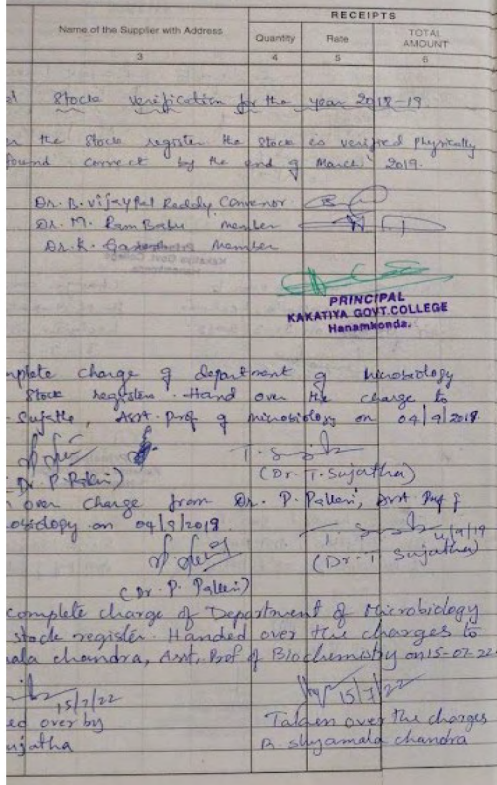 RECEIPTS
Name of the Supplier with Address Quantity Rate TOTAL AMOUNT
3 4 5 6
Stock verification for the year 2018-19
the Stock register the Stock is verified physically
found correct by the end of March 2019.
Dr. B. Vijay Pal Reddy Convenor
Dr. M. Ram Babu member
Dr. K. member
PRINCIPAL
KAKATIYA GOVT.COLLEGE
Hanamkonda.
mplete charge of department of Microbiology
Stock register. Hand over the charge to
Sujatha, Asst. Prof of microbiology on 04/9/2019.
(Dr. T. Sujatha)
over charge from Dr. P. Pallavi, Asst Prof of
obiology on 04/9/2019.
4/9/19
(Dr. T Sujatha)
(Dr. P. Pallavi)
complete charge of Department of Microbiology
stock register. Handed over the charges to
ala chandra, Asst. Prof of Biochemistry on 15-07-22
15/7/22 15/7/22
ed over by Taken over the charges
ujatha B. Shyamala chandra